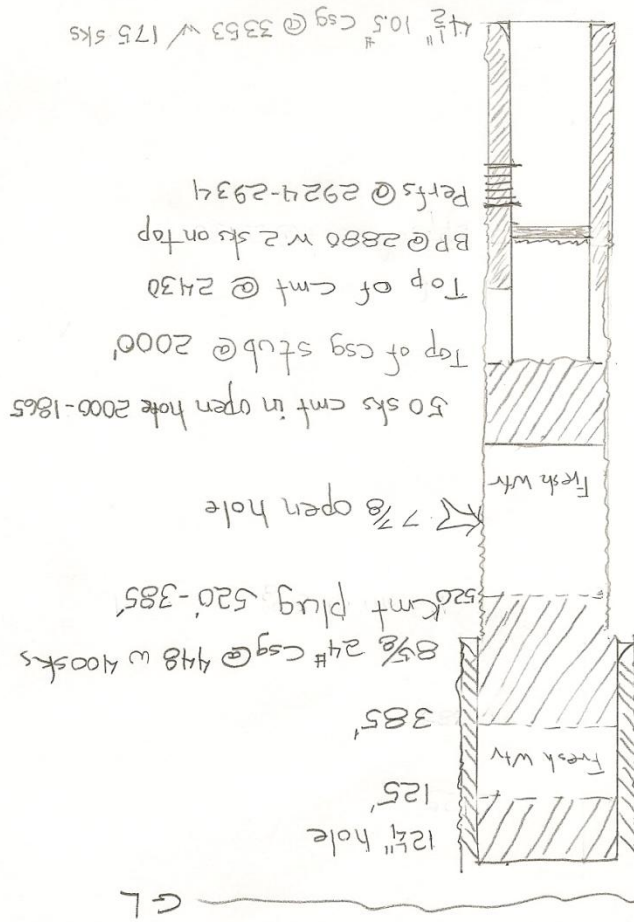 GL
12 1/4" hole
125'
Fresh Wtr
385'
8 5/8 24# Csg @ 448 w 400 sks
Cmt plug 520'-385'
520'
7 7/8 open hole
Fresh Wtr
50 sks cmt in open hole 2000-1865
Top of csg stub @ 2000'
Top of Cmt @ 2430
BP @ 2880 w 2 sks on top
Perfs @ 2924-2934
4 1/2" 10.5# Csg @ 3353 w/ 175 sks